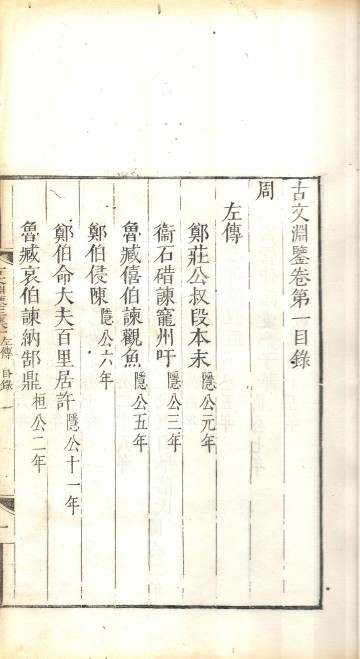 古文淵鑒卷第一目錄
周
左傳
鄭莊公叔段本末隱公元年
衞石碏諫寵州吁隱公三年
魯臧僖伯諫觀魚隱公五年
鄭伯侵陳隱公六年
鄭伯命大夫百里居許隱公十一年
魯臧哀伯諫納郜鼎桓公二年
左傳 目錄 一